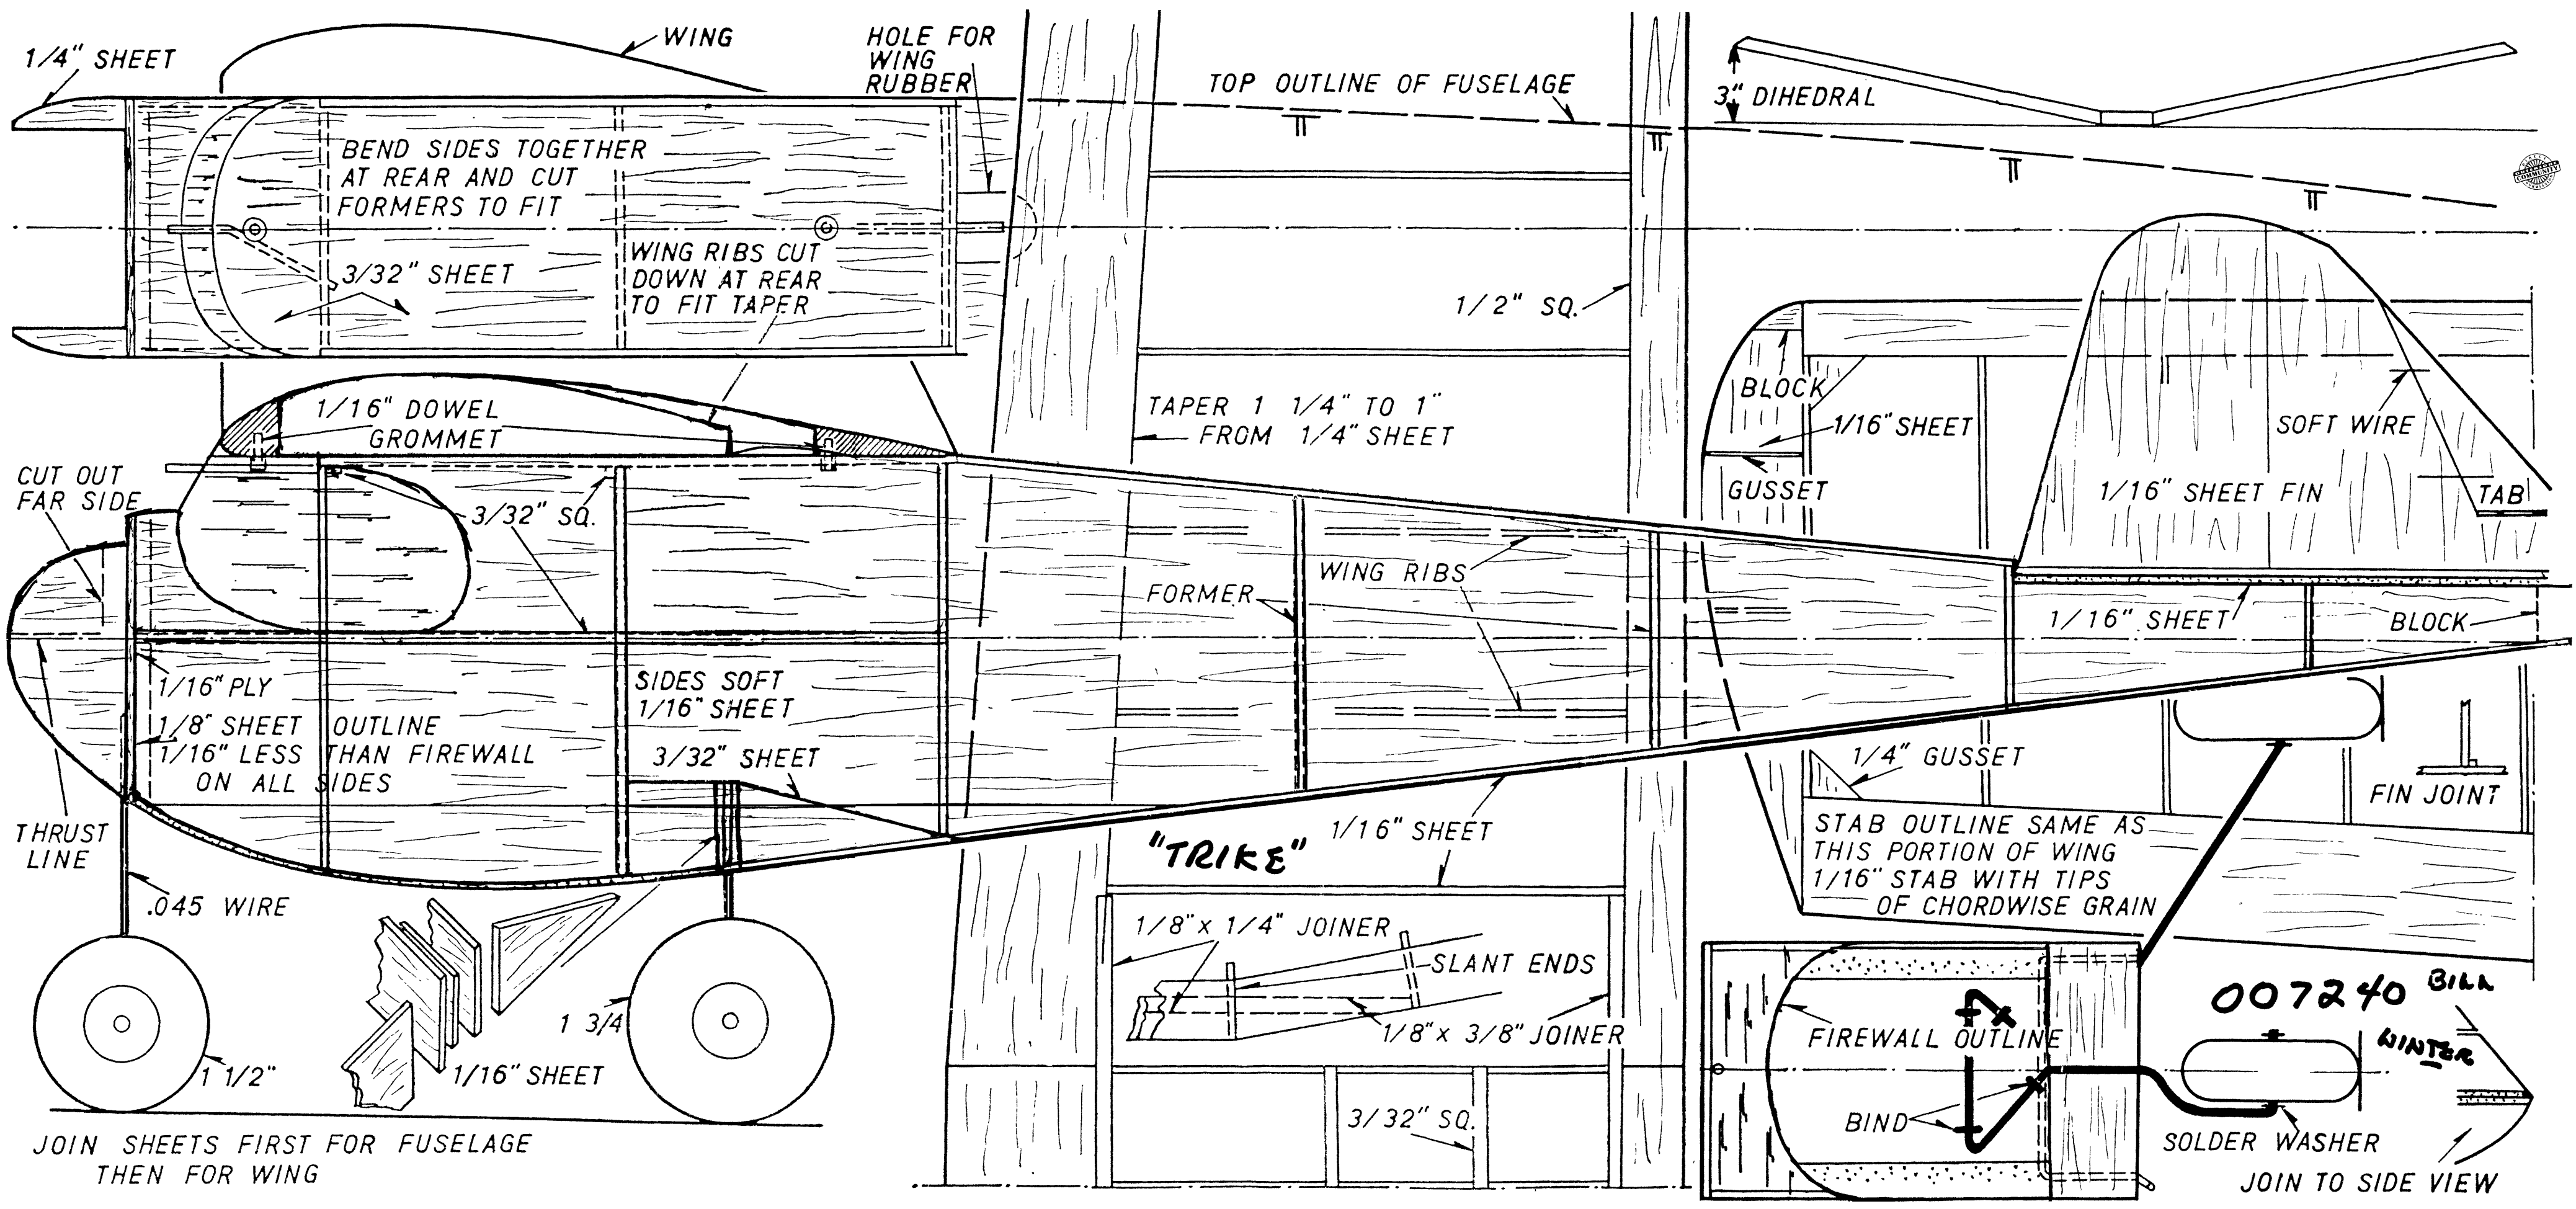 1/4" SHEET
WING
HOLE FOR
WING
RUBBER
TOP OUTLINE OF FUSELAGE
3" DIHEDRAL
BEND SIDES TOGETHER
AT REAR AND CUT
FORMERS TO FIT
3/32" SHEET
WING RIBS CUT
DOWN AT REAR
TO FIT TAPER
1/2" SQ.
BLOCK
1/16" SHEET
GUSSET
SOFT WIRE
1/16" SHEET FIN
TAB
1/16" DOWEL
GROMMET
TAPER 1 1/4" TO 1"
FROM 1/4" SHEET
CUT OUT
FAR SIDE
3/32" SQ.
WING RIBS
FORMER
1/16" SHEET
BLOCK
1/16" PLY
1/8" SHEET OUTLINE
1/16" LESS THAN FIREWALL
ON ALL SIDES
SIDES SOFT
1/16" SHEET
3/32" SHEET
1/4" GUSSET
FIN JOINT
THRUST
LINE
"TRIKE"
1/16" SHEET
STAB OUTLINE SAME AS
THIS PORTION OF WING
1/16" STAB WITH TIPS
OF CHORDWISE GRAIN
.045 WIRE
1/8" x 1/4" JOINER
SLANT ENDS
1/8" x 3/8" JOINER
1 1/2"
1 3/4
1/16" SHEET
3/32" SQ.
FIREWALL OUTLINE
BIND
007240 BILL
WINTER
SOLDER WASHER
JOIN TO SIDE VIEW
JOIN SHEETS FIRST FOR FUSELAGE
THEN FOR WING